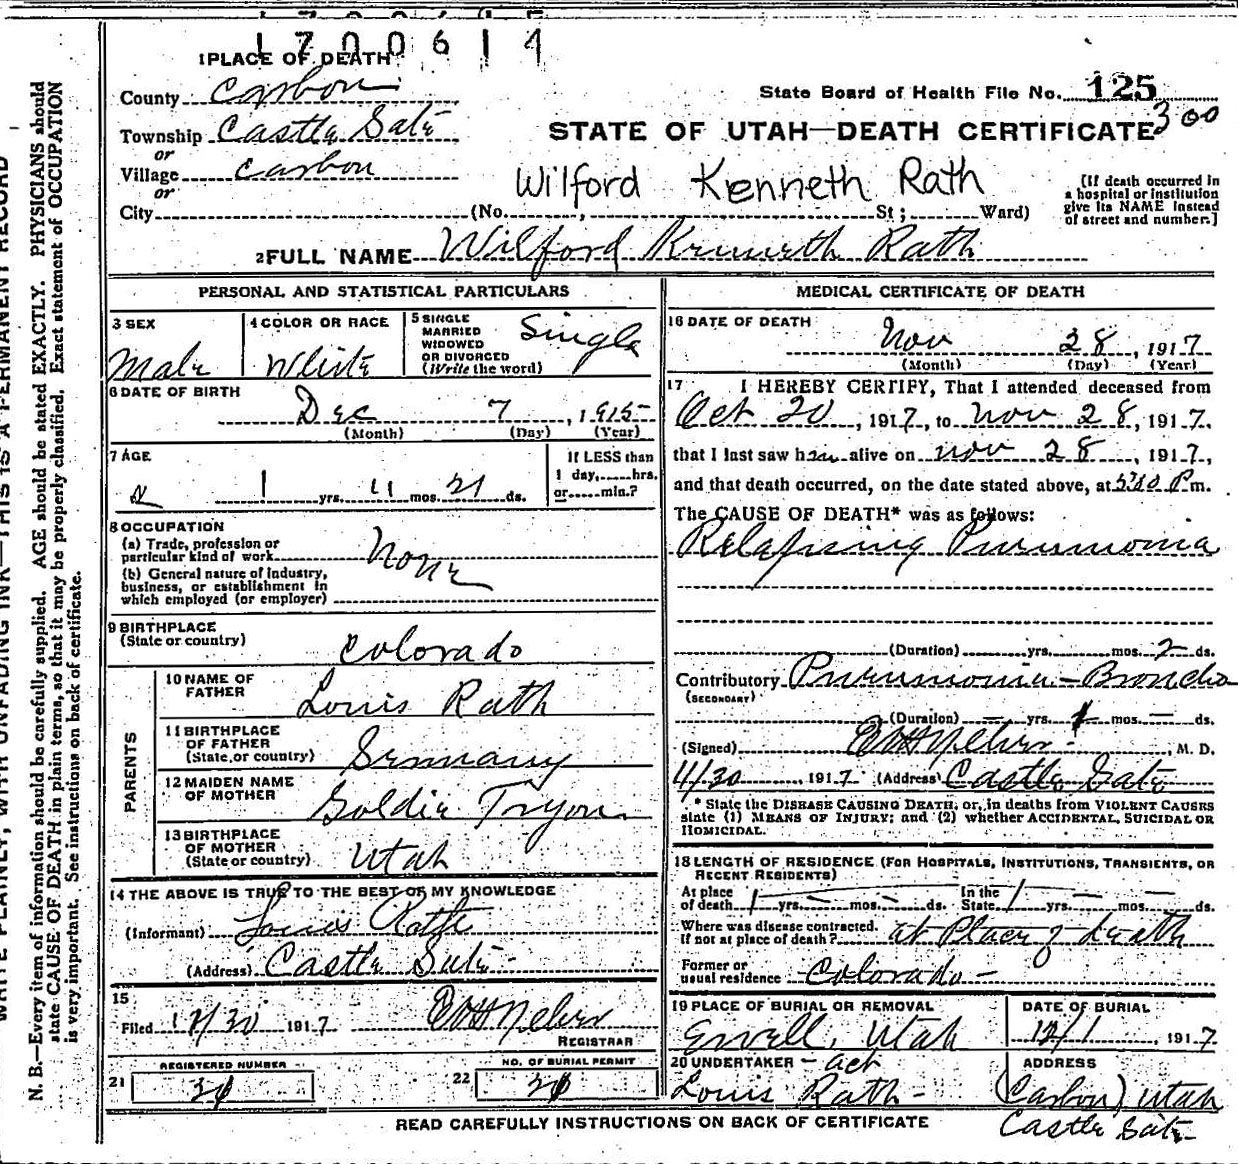 1700614
1 PLACE OF DEATH
County Carbon
State Board of Health File No. 125
Township Castle Gate
STATE OF UTAH—DEATH CERTIFICATE 300
or
Village Carbon
or
Wilford Kenneth Rath
[If death occurred in a hospital or institution give its NAME instead of street and number.]
City (No. , St; Ward)
2 FULL NAME Wilford Kenneth Rath
PERSONAL AND STATISTICAL PARTICULARS
3 SEX
Male
4 COLOR OR RACE
White
5 SINGLE
MARRIED
WIDOWED
OR DIVORCED
(Write the word)
Single
6 DATE OF BIRTH
Dec 7, 1915
(Month) (Day) (Year)
7 AGE
1 yrs. 11 mos. 21 ds.
If LESS than
1 day, hrs.
or min.?
8 OCCUPATION
(a) Trade, profession or
particular kind of work None
(b) General nature of industry,
business, or establishment in
which employed (or employer)
9 BIRTHPLACE
(State or country) Colorado
PARENTS
10 NAME OF
FATHER Louis Rath
11 BIRTHPLACE
OF FATHER
(State or country) Germany
12 MAIDEN NAME
OF MOTHER Goldie Tryon
13 BIRTHPLACE
OF MOTHER
(State or country) Utah
14 THE ABOVE IS TRUE TO THE BEST OF MY KNOWLEDGE
(Informant) Louis Rath
(Address) Castle Gate
15
Filed 12/30 1917
REGISTRAR
REGISTERED NUMBER
21
NO. OF BURIAL PERMIT
22
MEDICAL CERTIFICATE OF DEATH
16 DATE OF DEATH
Nov 28, 1917
(Month) (Day) (Year)
17 I HEREBY CERTIFY, That I attended deceased from
Oct 20, 1917, to Nov 28, 1917,
that I last saw him alive on Nov 28, 1917,
and that death occurred, on the date stated above, at 5:30 P.m.
The CAUSE OF DEATH* was as follows:
Relapsing Pneumonia
(Duration) yrs. mos. 2 ds.
Contributory Pneumonia - Broncho
(SECONDARY)
(Duration) — yrs. 1 mos. — ds.
(Signed) , M. D.
11/30, 1917 (Address) Castle Gate
* State the DISEASE CAUSING DEATH, or, in deaths from VIOLENT CAUSES
state (1) MEANS OF INJURY; and (2) whether ACCIDENTAL, SUICIDAL OR
HOMICIDAL.
18 LENGTH OF RESIDENCE (FOR HOSPITALS, INSTITUTIONS, TRANSIENTS, OR
RECENT RESIDENTS)
At place
of death 1 yrs. — mos. — ds. In the State 1 yrs. — mos. — ds.
Where was disease contracted,
if not at place of death? at Place of death
Former or
usual residence Colorado -
19 PLACE OF BURIAL OR REMOVAL
Utah
DATE OF BURIAL
12/1, 1917
20 UNDERTAKER - act
Louis Rath -
ADDRESS
(Carbon) Utah
Castle Gate
READ CAREFULLY INSTRUCTIONS ON BACK OF CERTIFICATE
WRITE PLAINLY, WITH UNFADING INK—THIS IS A PERMANENT RECORD
N. B.—Every item of information should be carefully supplied. AGE should be stated EXACTLY. PHYSICIANS should
state CAUSE OF DEATH in plain terms, so that it may be properly classified. Exact statement of OCCUPATION
is very important. See instructions on back of certificate.